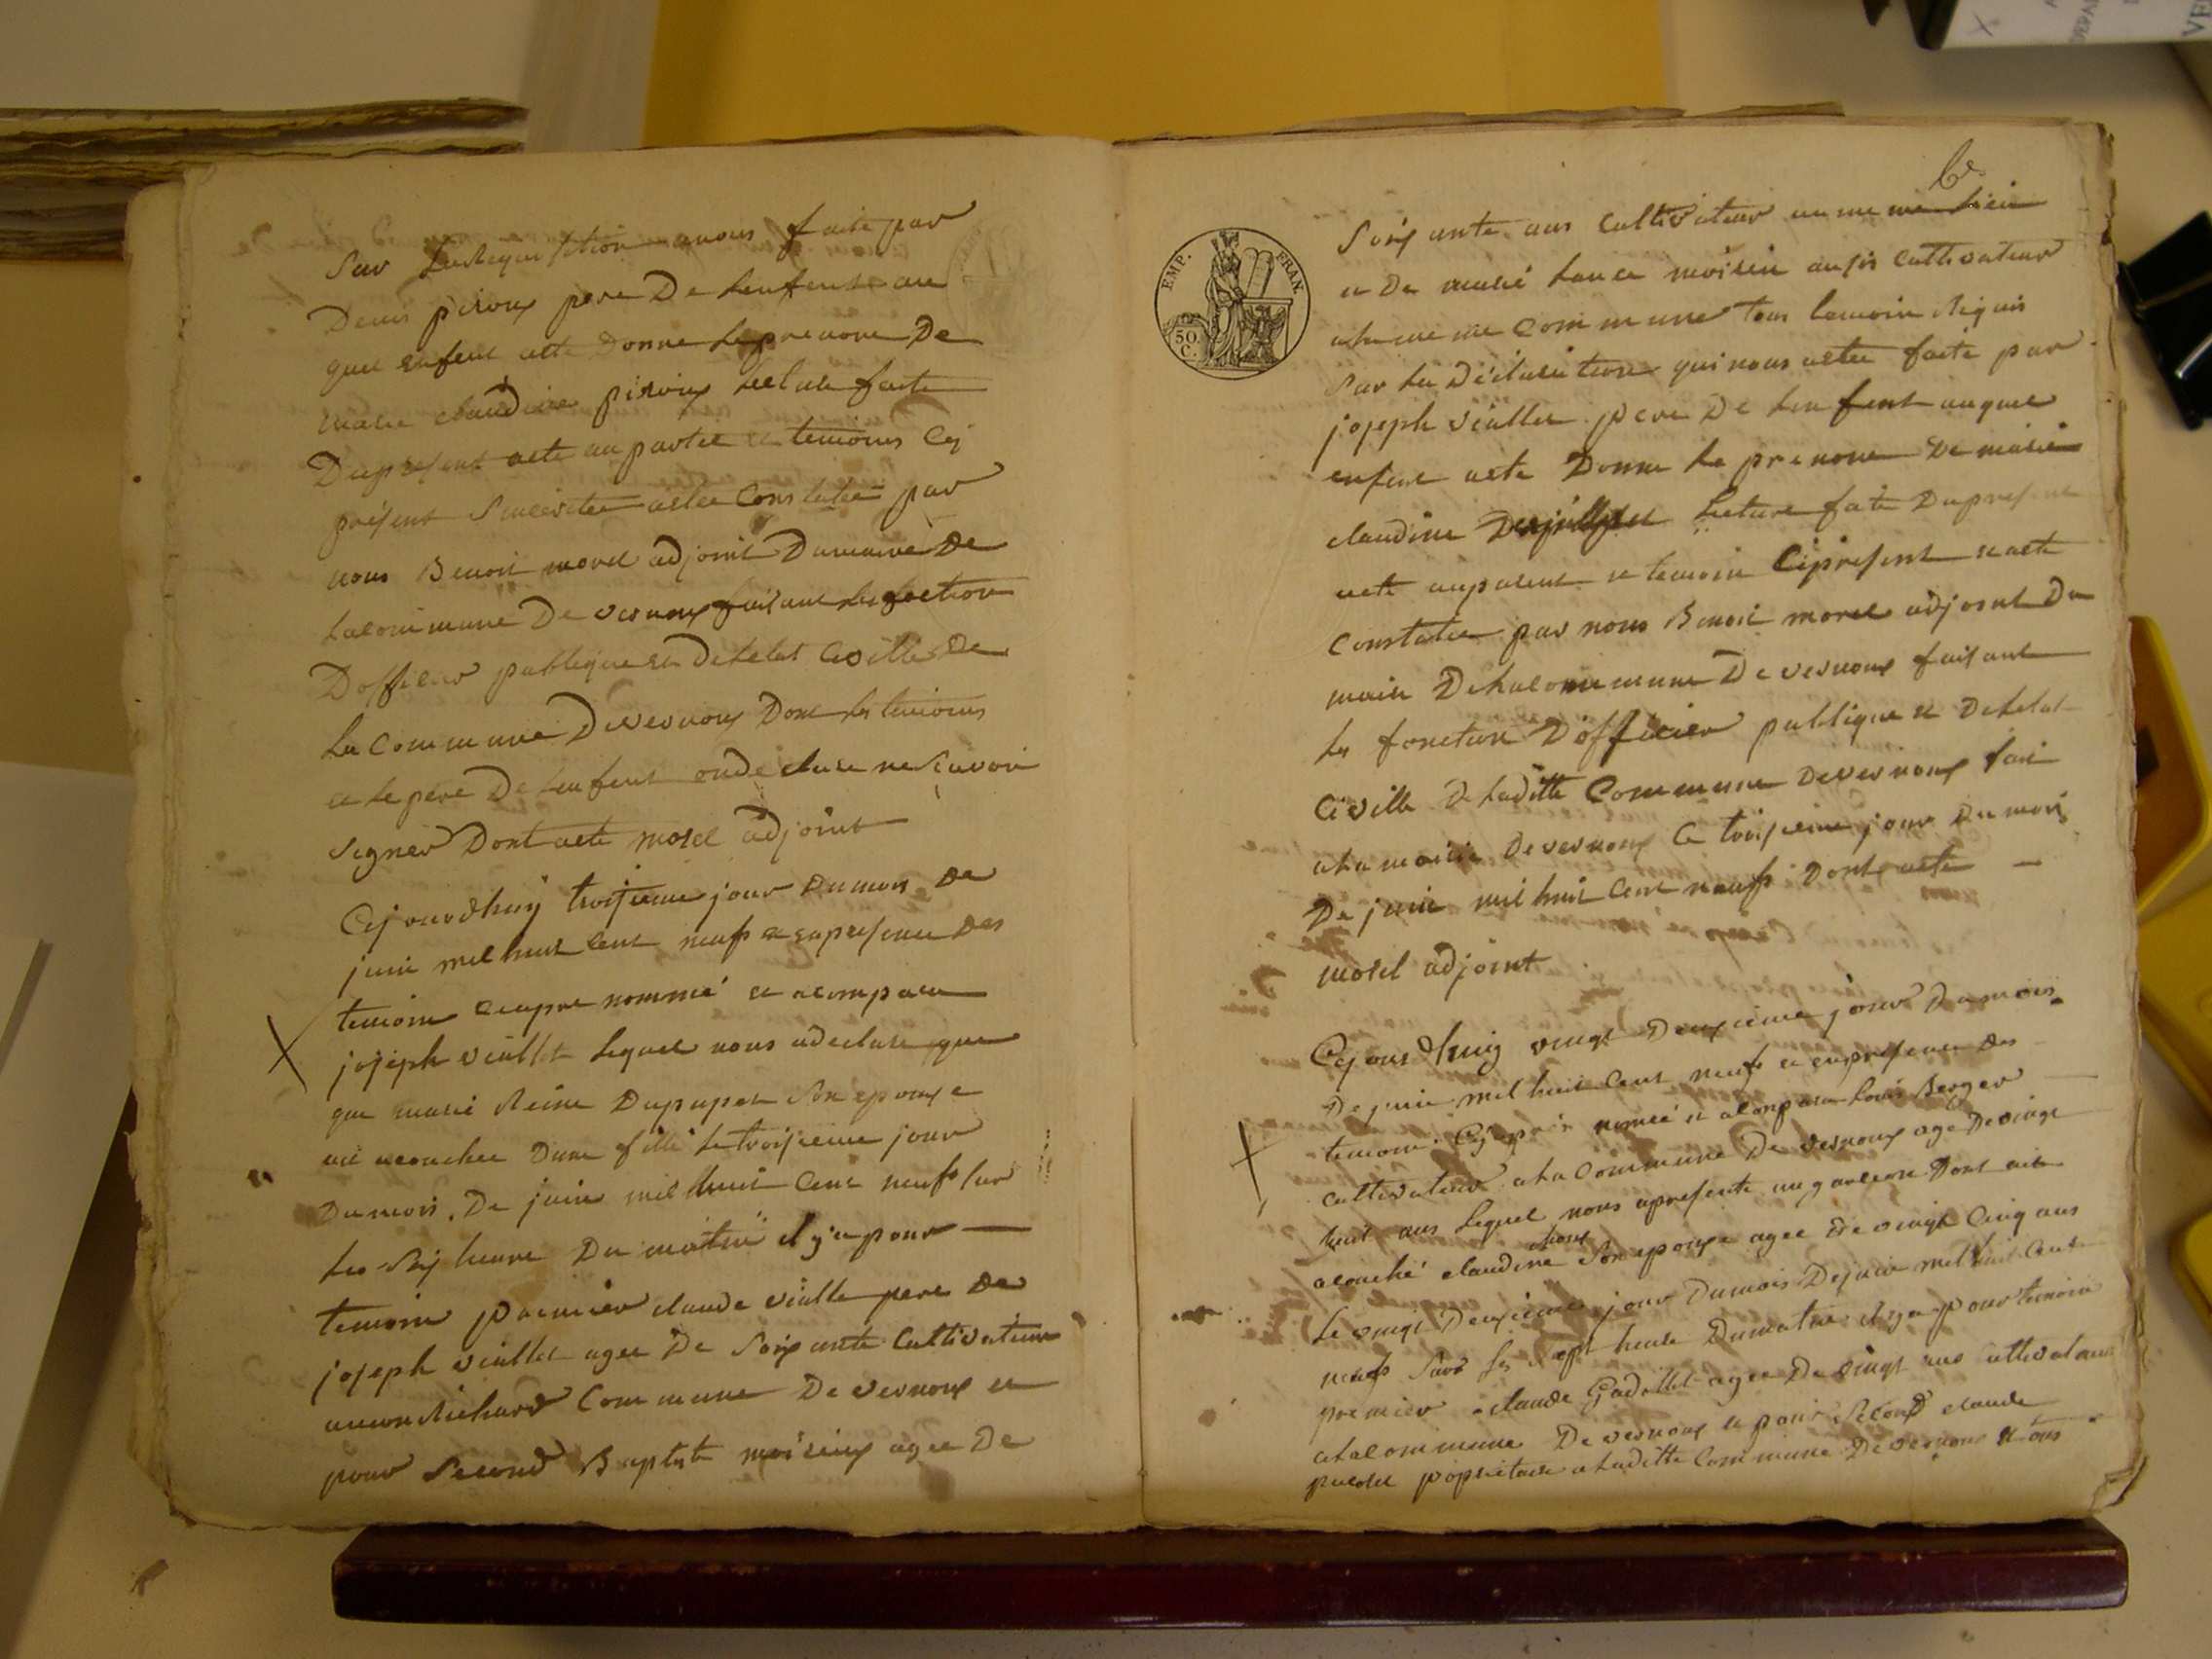 Sur la Requisition a nous faite par
Denis piroux pere De Lenfent au
quel enfent aete Donne le prenom De
marie claudine piroux lecture faite
Du present acte au partie et temoins Cy
présent aetee Constatée par
nous Benoit morel adjoint Dumaire De
La commune De vernoux faisant les foction
Dofficier publique et De Letat Civille De
La commune De vernoux Dont les temoins
et le pere De Lenfent on de clare ne scavoir
signer Dont acte morel adjoint
Cejourdhuy troisieme jour Du mois De
juin mil huit Cent neufs et en presence Des
temoins ci apre nommé et a comparu
joseph viallet lequel nous a declare que
que marie Reine Dupuget Son epouse
ait acouchee Dune fille le troisieme jour
Du mois De juin mil huit Cent neufs sur
les Sis heure Du matin il y a pour
temoin premier claude vialle pere De
joseph viallet agee De Soixante Cultivateur
Richard Commune De vernoux et
pour Second Baptiste agee De
6e
Soixante ans Cultivateur au me me Lieu
et De ausis Cultivateur
a la me me Commune tous temoin Requis
Sur La Déclaration qui nous a etee faite par
joseph viallet pere De Len fent auquel
enfent aete Donne Le prenom De marie
claudine Lecture faite Du present
acte au parent et temoin Ci present et aete
Constatee par nous Benoit morel adjoint Du
maire De La commune De vernoux faisant
les fonction D'officier publique et De Letat
Civille De Laditte Commune De vernoux fait
a la mairie De vernoux Ce troisieme jour Du mois
De juin mil huit Cent neufs Dont acte
morel adjoint
Cejour Dhuig vingt Deuxieme jour Du mois
De juin mil huit Cent neufs et en presence Des
temoin Cy aprés nomée et a Comparu Louis Berger
cultivateur a La Commune De vernoux age De vingt
huit ans Lequel nous a presente un garcon Dont ait
acouché claudine Son epouse agee De vingt Cinq ans
Le vingt Deuxieme jour Du mois De juin mil huit Cent
neufs Sur les sept heure Du matin il y a pour temoin
premier claude Gadollet agee De vingt ans cultivateur
a La commune De vernoux et pour Second claude
propriétaire a Laditte Commune De vernoux tous
EMP. FRAN.
50.
C.